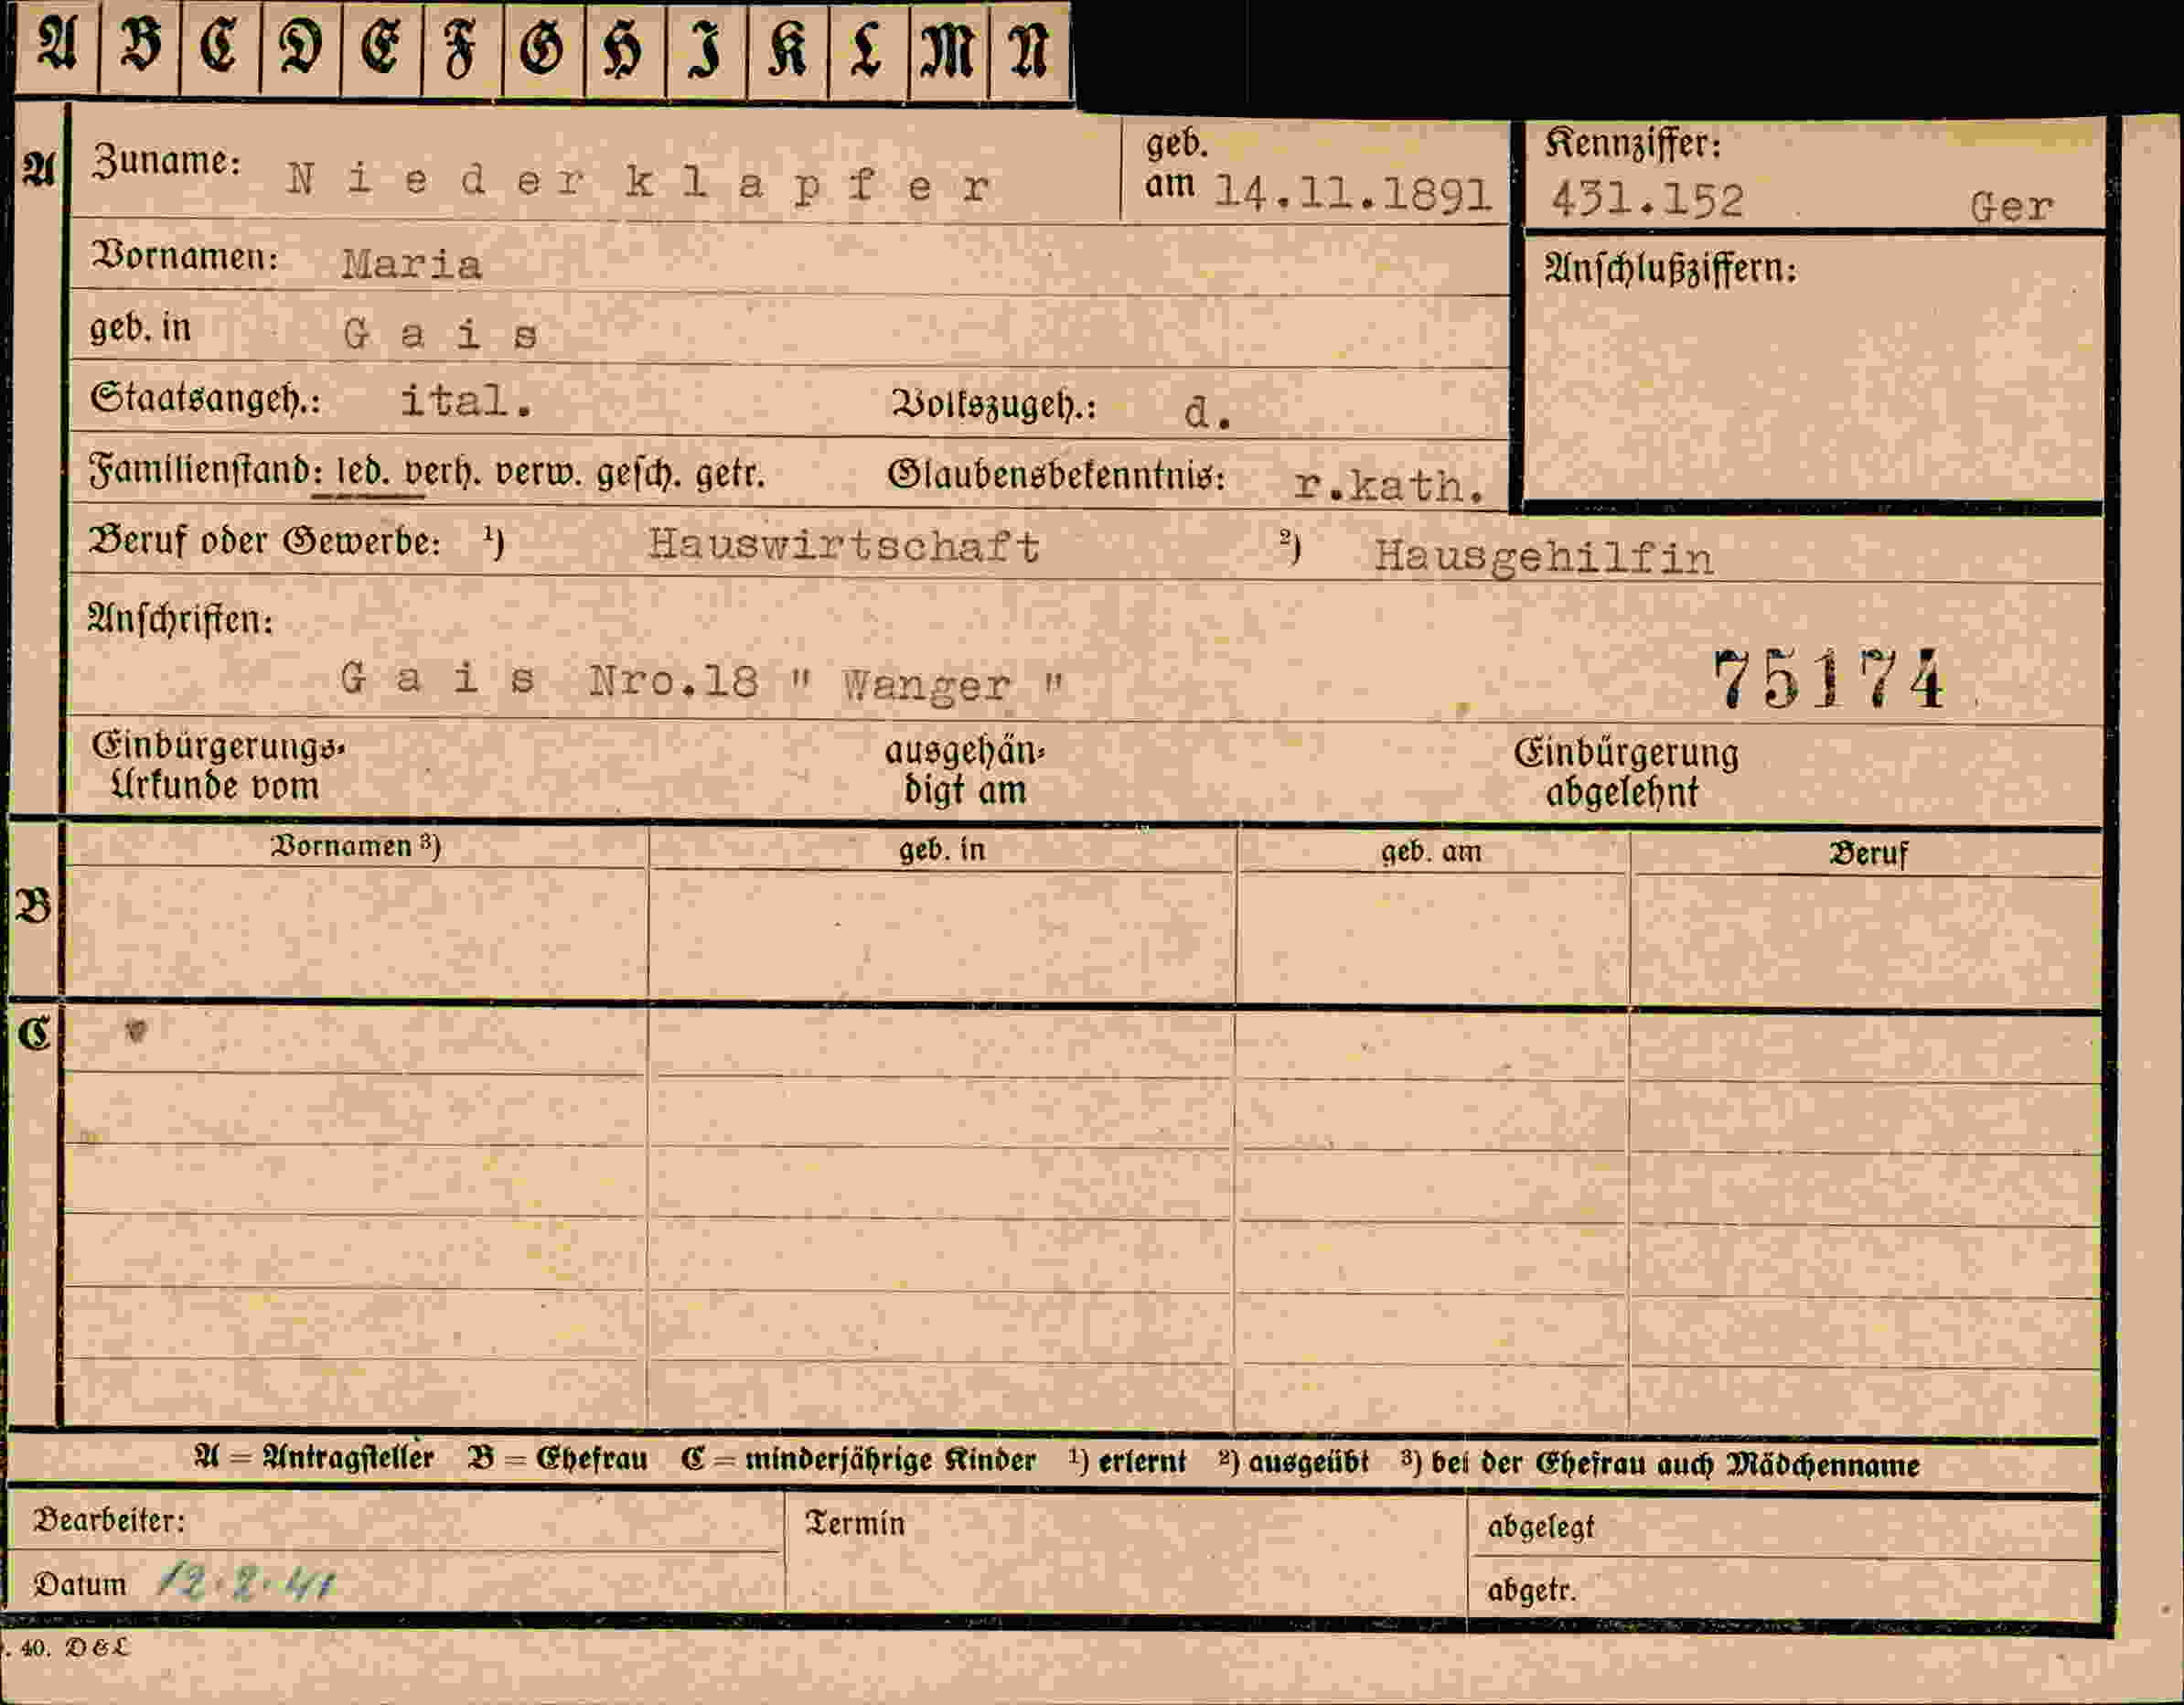 A B C D E F G H I K L M N
A Zuname: Niederklapfer geb. am 14.11.1891 Kennziffer: 431.152 Ger
Vornamen: Maria Anschlußziffern:
geb. in Gais
Staatsangeh.: ital. Volkszugeh.: d.
Familienstand: led. verh. verw. gesch. getr. Glaubensbekenntnis: r.kath.
Beruf oder Gewerbe: ¹) Hauswirtschaft ²) Hausgehilfin
Anschriften:
Gais Nro.18 " Wanger " 75174
Einbürgerungs- ausgehän- Einbürgerung
Urkunde vom digt am abgelehnt
Vornamen ³) geb. in geb. am Beruf
B
C
A = Antragsteller B = Ehefrau C = minderjährige Kinder ¹) erlernt ²) ausgeübt ³) bei der Ehefrau auch Mädchenname
Bearbeiter: Termin abgelegt
Datum 12.2.41 abgetr.
. 40. D & L